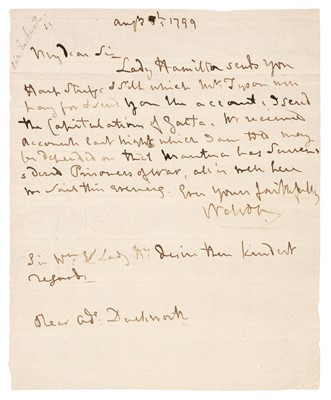 augst 9th: 1799
My dear Sir
Lady Hamilton sends you
Harp Strings & Bill which Mr. Tyson will
pay for & send you the account, I send
the Capitulations of Gaeta. We received
accounts last night which I am told may
be depended on that Mantua has Surren
=dered Prisoners of War, all is well here
we sail this evening. Ever yours faithfully
Nelson
Sir Wm. & Lady Hn. desire their kindest
regards
Rear Adl. Duckworth